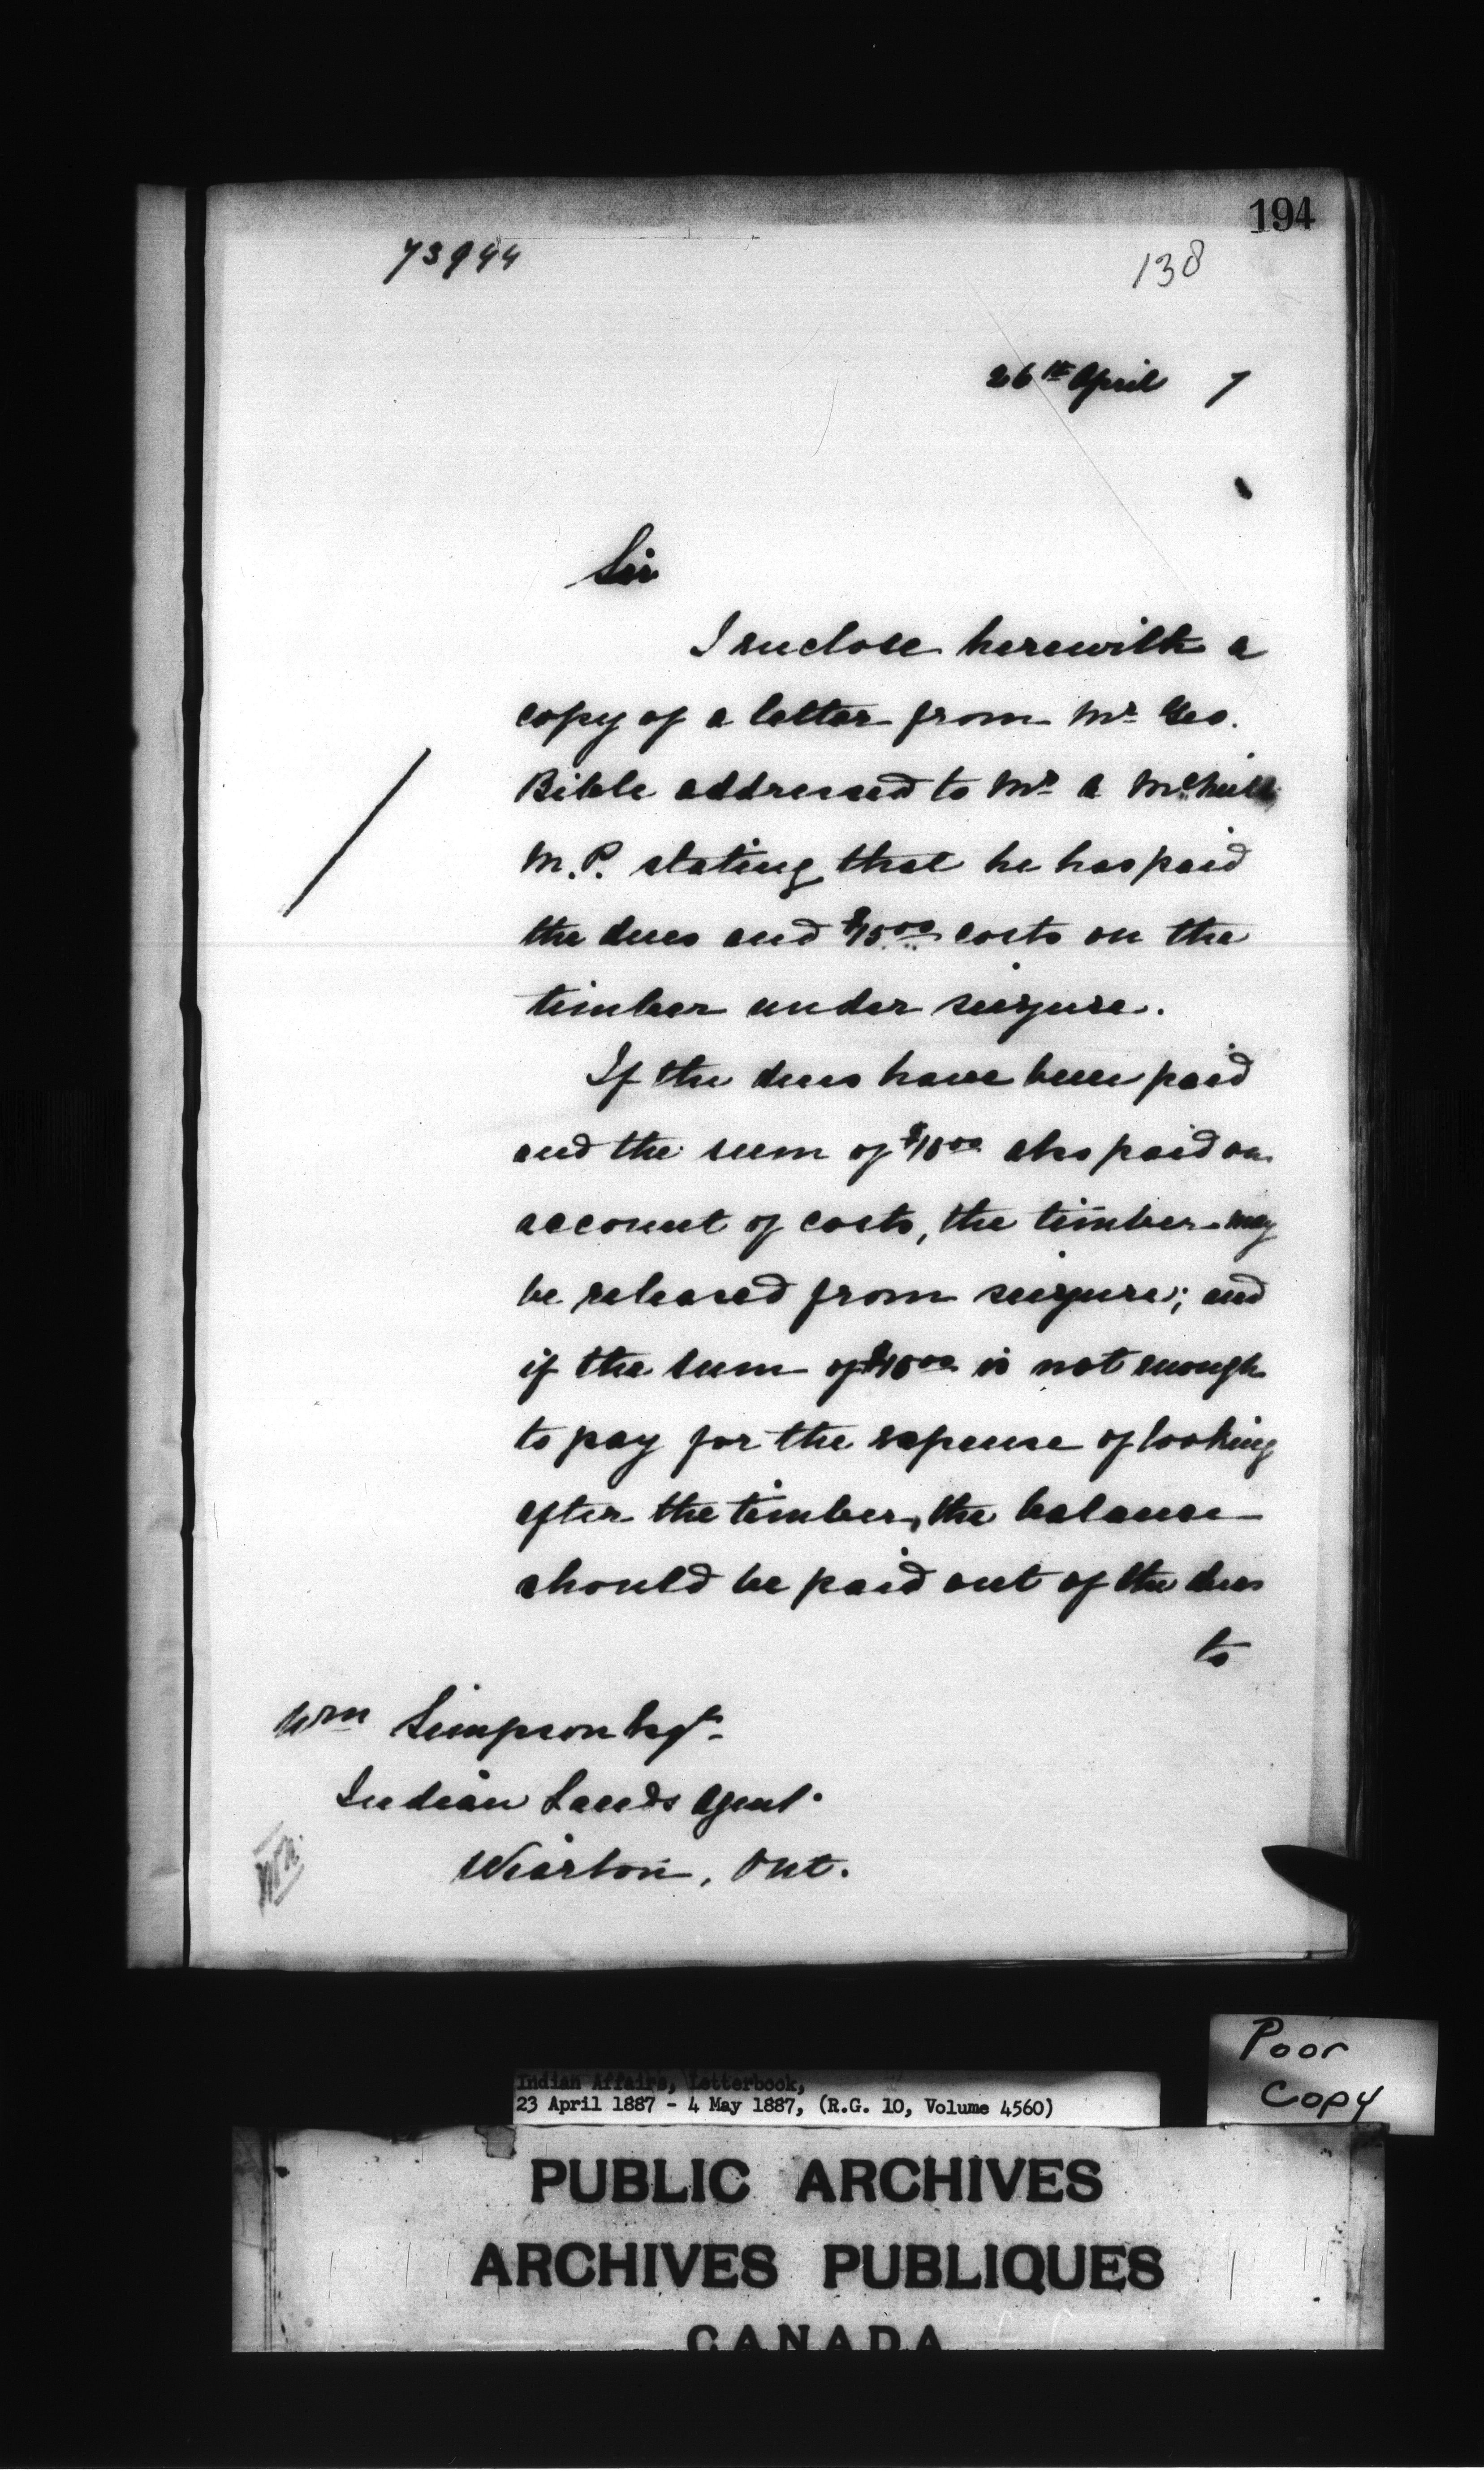 194
73944
138
26th April 7
Sir
I enclose herewith a
copy of a letter from Mr Geo.
Bible addressed to Mr A McNeill
M.P. stating that he has paid
the dues and costs on the
timber under seizure.
If the dues have been paid
and the sum of also paid on
account of costs, the timber may
be released from seizure; and
if the sum of is not enough
to pay for the expense of looking
after the timber, the balance
should be paid out of the dues
to
Wm Simpson Esqr
Indian Lands Agent
Wiarton, Ont.
Poor
Copy
Indian Affairs, Letterbook,
23 April 1887 - 4 May 1887, (R.G. 10, Volume 4560)
PUBLIC ARCHIVES
ARCHIVES PUBLIQUES
CANADA